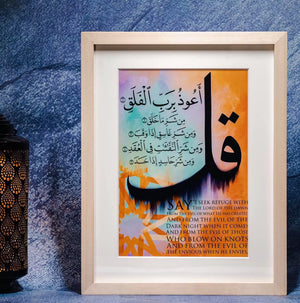 قل
أَعُوذُ بِرَبِّ الْفَلَقِ
مِن شَرِّ مَا خَلَقَ
وَمِن شَرِّ غَاسِقٍ إِذَا وَقَبَ
وَمِن شَرِّ النَّفَّاثَاتِ فِي الْعُقَدِ
وَمِن شَرِّ حَاسِدٍ إِذَا حَسَدَ
SAY "I SEEK REFUGE WITH
THE LORD OF THE DAWN
FROM THE EVIL OF WHAT HE HAS CREATED
AND FROM THE EVIL OF THE
DARK NIGHT WHEN IT COMES
AND FROM THE EVIL OF THOSE
WHO BLOW ON KNOTS
AND FROM THE EVIL OF
THE ENVIOUS WHEN HE ENVIES